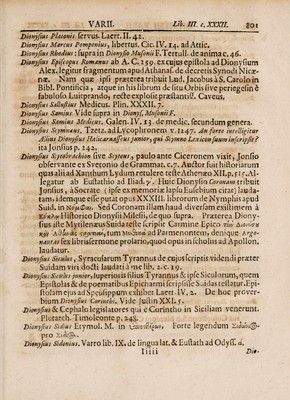 VARII. Lib. III. c. XXXII. 801
Dionysius Platonis servus. Laert. II. 42.
Dionysius Marcus Pomponius, libertus. Cic. IV. 14. ad Attic.
Dionysius Rhodius: supra in Dionysio Musonii F. Tertull. de animæ, 46.
Dionysius Episcopus Romanus ab A. C. 259. ex cujus epistola ad Dionysium
Alex. legitur fragmentum apud Athanaf. de decretis Synodi Nicæ-
næ. Nam quæ ipsi præterea tribuit Lud. Jacobus à S. Carolo in
Bibl. Pontificia, atque in his librum de situ Orbis sive periegesin è
fabuloso Luitprando, recte explosit præstantiss. Caveus.
Dionysius Sallustius Medicus. Plin. XXXII. 7.
Dionysius Samius. Vide supra in Dionys. Musonii F.
Dionysius Samius Medicus. Galen. IV. 13. de medic. secundum genera.
Dionysius Scymnaus, Tzetz. ad Lycophronem v. 1247. An forte intelligitur
Ælius Dionysius Halicarnasseus junior, qui Scymno Lexicon suum inscripsit?
ita Jonsius p. 242.
Dionysius Scytobrachion sive Scyteus, paulo ante Ciceronem vixit, Jonsio
observante ex Svetonio de Grammat. c. 7. Auctor fuit historiarum
quas alii ad Xanthum Lydum retulere teste Athenæo XII. p. 515. Al-
legatur ab Eustathio ad Iliad. γ. Huic Dionysium Coronum tribuit
Jonsius, à Socrate (ipse ex memoria lapsu Eusebium citat) lauda-
tam, idemque esse putat opus XXXIII. librorum de Nymphis apud
Suid. in Sed Coronam illam haud diversam existimem à
Historico Dionysii Milesii, de quo supra. Præterea Diony-
sius iste Mytilenæus Suida teste scripsit Carmine Epico
tum ad Parmenontem, denique Argo-
nautas sex libris sermone prosario, quod opus in scholis ad Apollon.
laudatur.
Dionysius Siculus, Syracusarum Tyrannus de cujus scriptis videndi præter
Suidam viri docti laudati à me lib. 2. c. 19.
Dionysius Siculus junior, superioris filius Tyrannus & ipse Siculorum, quem
Epistolas & de poematibus Epicharmi scripsisse Suidas testatur. Epi-
stolam ejus ad Speusippum exhibet Laert. IV. 2. De hoc prover-
bium Dionysius Corinthi. Vide Justin XXI. 5.
Dionysius & Cephalo legislatores qui è Corintho in Siciliam venerunt.
Plutarch. Timoleonte p. 248.
Dionysius Sidius Etymol. M. in Forte legendum
pro
Dionysius Sidonius, Varro lib. IX. de lingua lat. & Eustath ad Odyss. α.
Iiiii Dio-